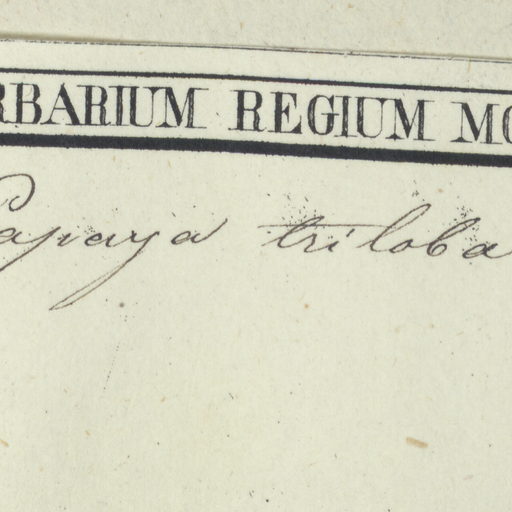 RBARIUM REGIUM MO
Papaya triloba